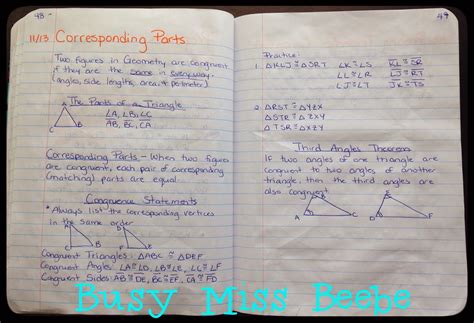 48
11/13 Corresponding Parts
Two figures in Geometry are congruent
if they are the same in every way.
(angles, side lengths, area + perimeter)
The Parts of a Triangle
A
B
C
∠A, ∠B, ∠C
AB, BC, CA
Corresponding Parts - When two figures
are congruent, each pair of corresponding
(matching) parts are equal.
Congruence Statements
*Always list the corresponding vertices
in the same order
Congruent Triangles: △ABC ≅ △DEF
Congruent Angles: ∠A≅∠D, ∠B≅∠E, ∠C≅∠F
Congruent Sides: AB≅DE, BC≅EF, CA≅FD
49
Practice:
1. △KLJ≅△SRT ∠K≅∠S KL≅SR
∠L≅∠R LJ≅RT
∠J≅∠T JK≅TS
2. △RST≅△YZX
△STR≅△ZXY
△TSR≅△XZY
Third Angles Theorem
If two angles of one triangle are
congruent to two angles of another
triangle, then the third angles are
also congruent
A
B
C
D
E
F
Busy Miss Beebe